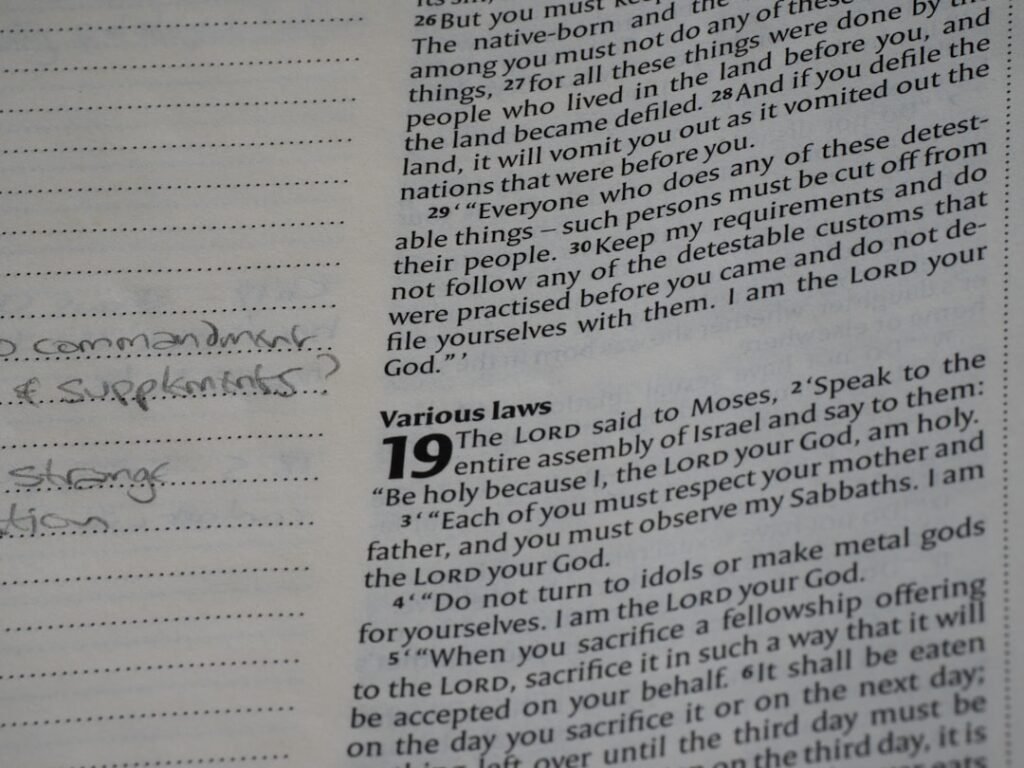 commandment
& supplements?
strange
its sin,
26 But you must keep
The native-born and the
among you must not do any of these
things, 27 for all these things were done by the
people who lived in the land before you, and
the land became defiled. 28 And if you defile the
land, it will vomit you out as it vomited out the
nations that were before you.
29 ‘ “Everyone who does any of these detest-
able things – such persons must be cut off from
their people. 30 Keep my requirements and do
not follow any of the detestable customs that
were practised before you came and do not de-
file yourselves with them. I am the LORD your
God.” ’
Various laws
19 The LORD said to Moses, 2 ‘Speak to the
entire assembly of Israel and say to them:
“Be holy because I, the LORD your God, am holy.
3 ‘ “Each of you must respect your mother and
father, and you must observe my Sabbaths. I am
the LORD your God.
4 ‘ “Do not turn to idols or make metal gods
for yourselves. I am the LORD your God.
5 ‘ “When you sacrifice a fellowship offering
to the LORD, sacrifice it in such a way that it will
be accepted on your behalf. 6 It shall be eaten
on the day you sacrifice it or on the next day;
left over until the third day must be
on the third day, it is
eats